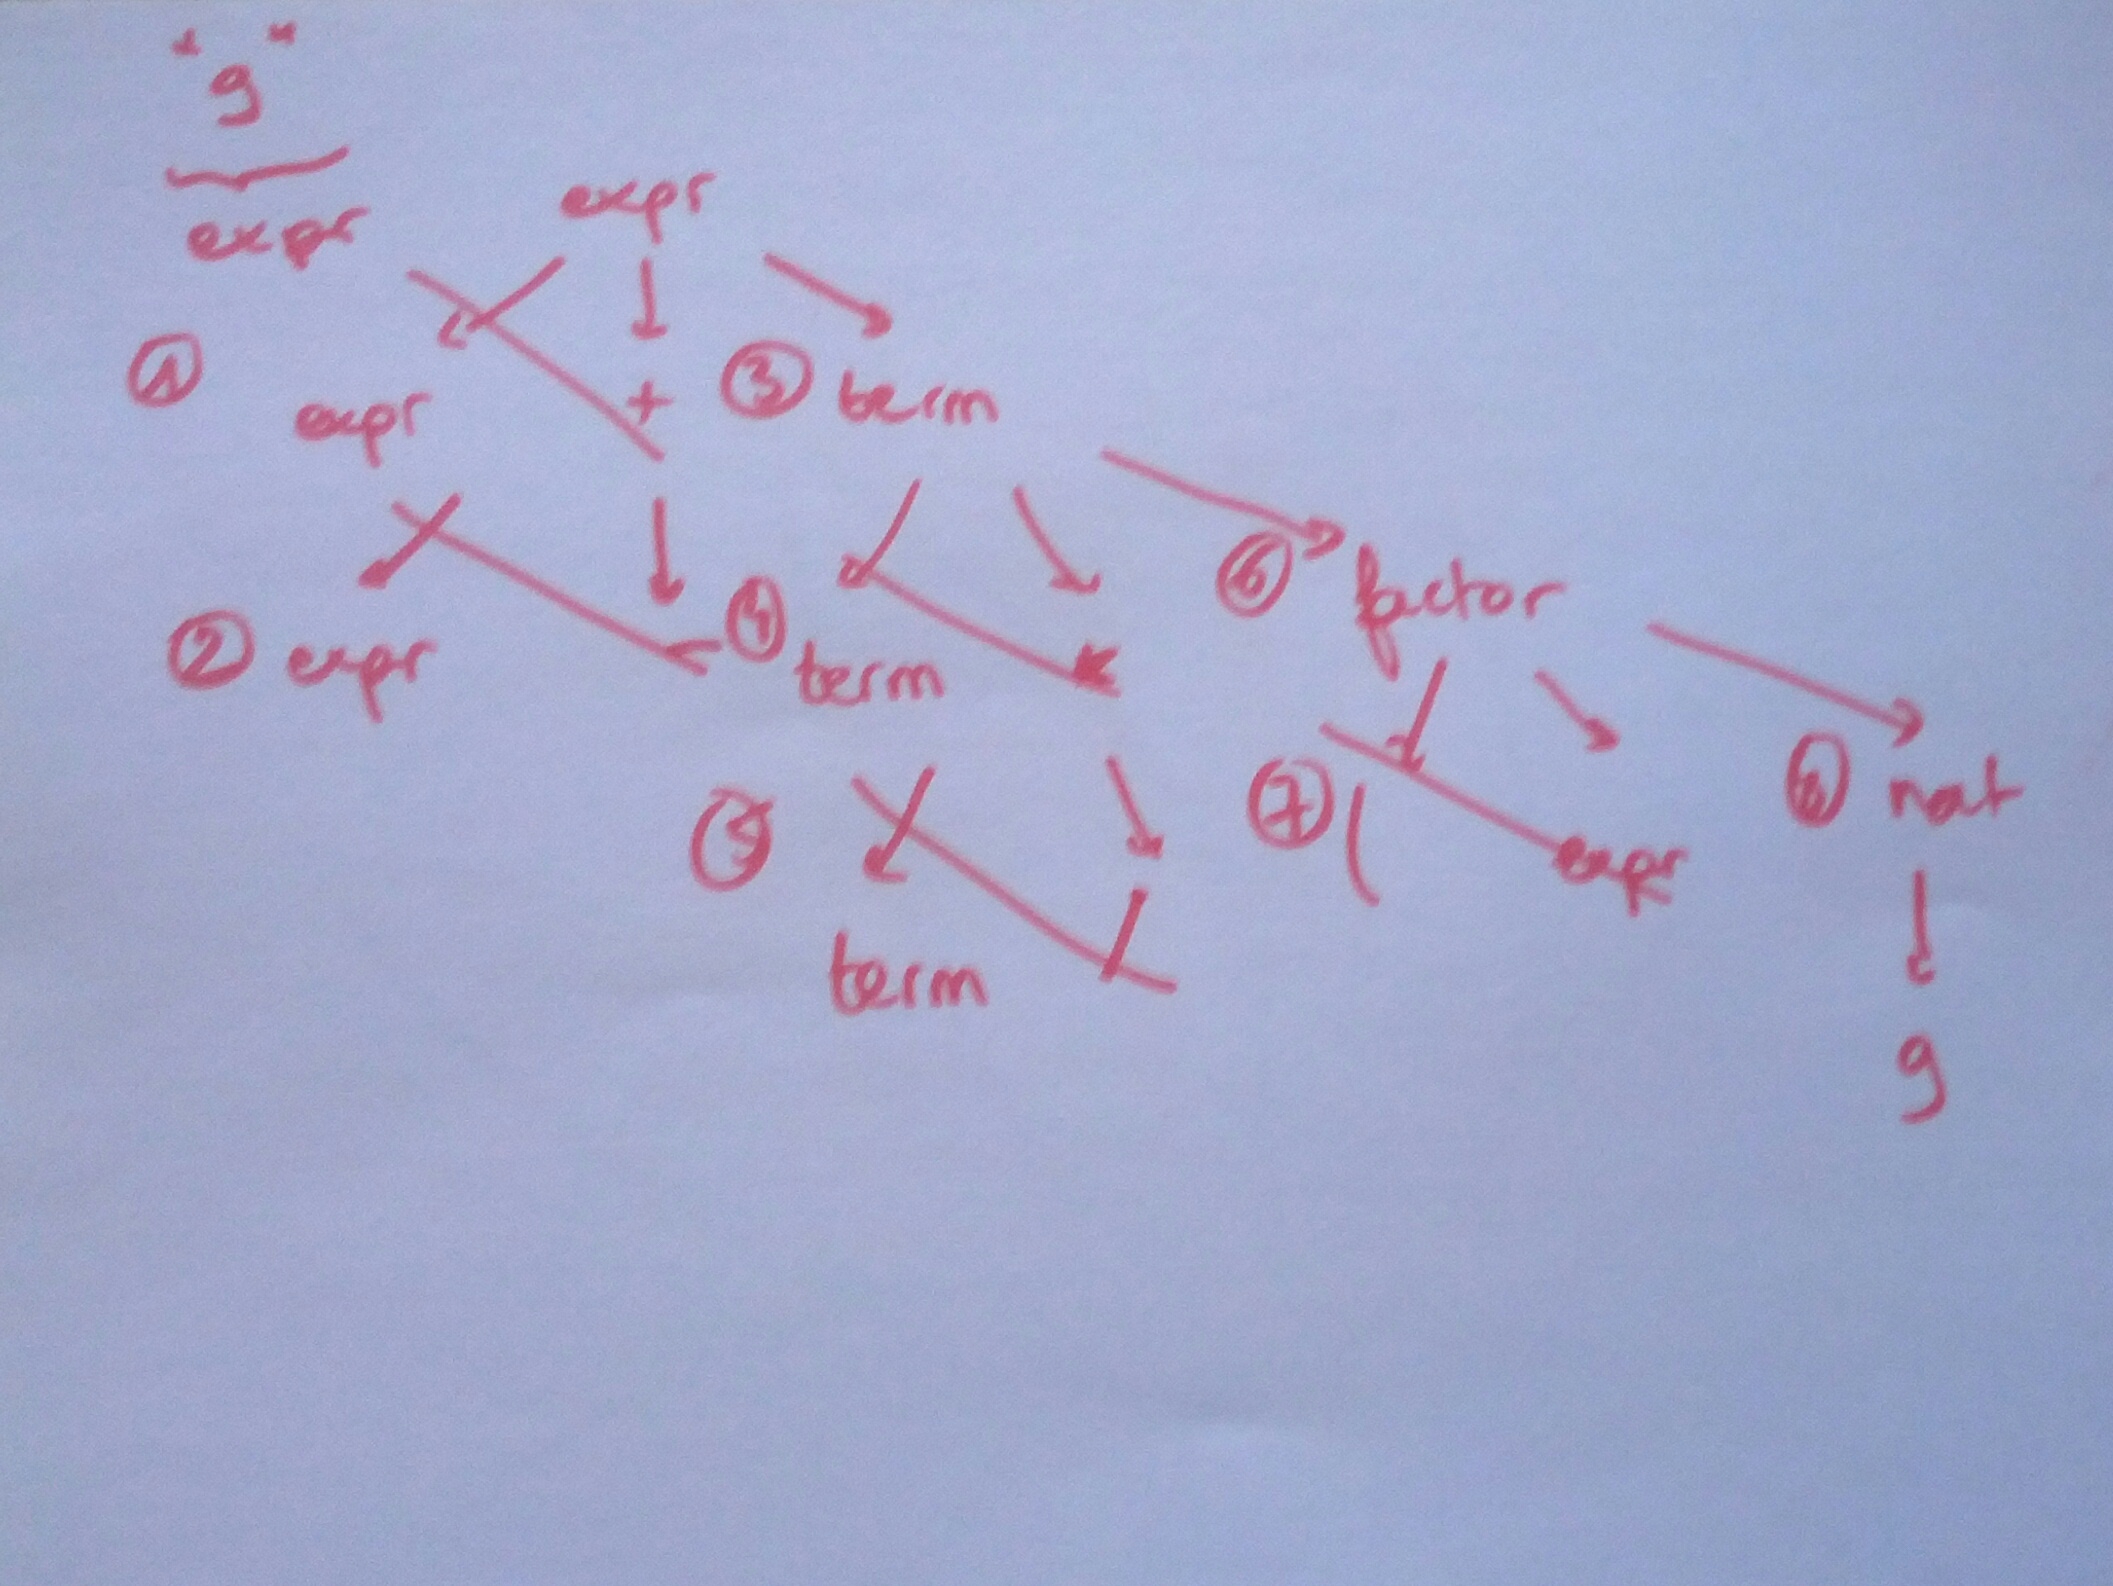 "9"
expr
expr
①
expr
+
③ term
② expr
④ term
⑥ factor
⑤
term
⑦ (
expr
⑧ nat
9